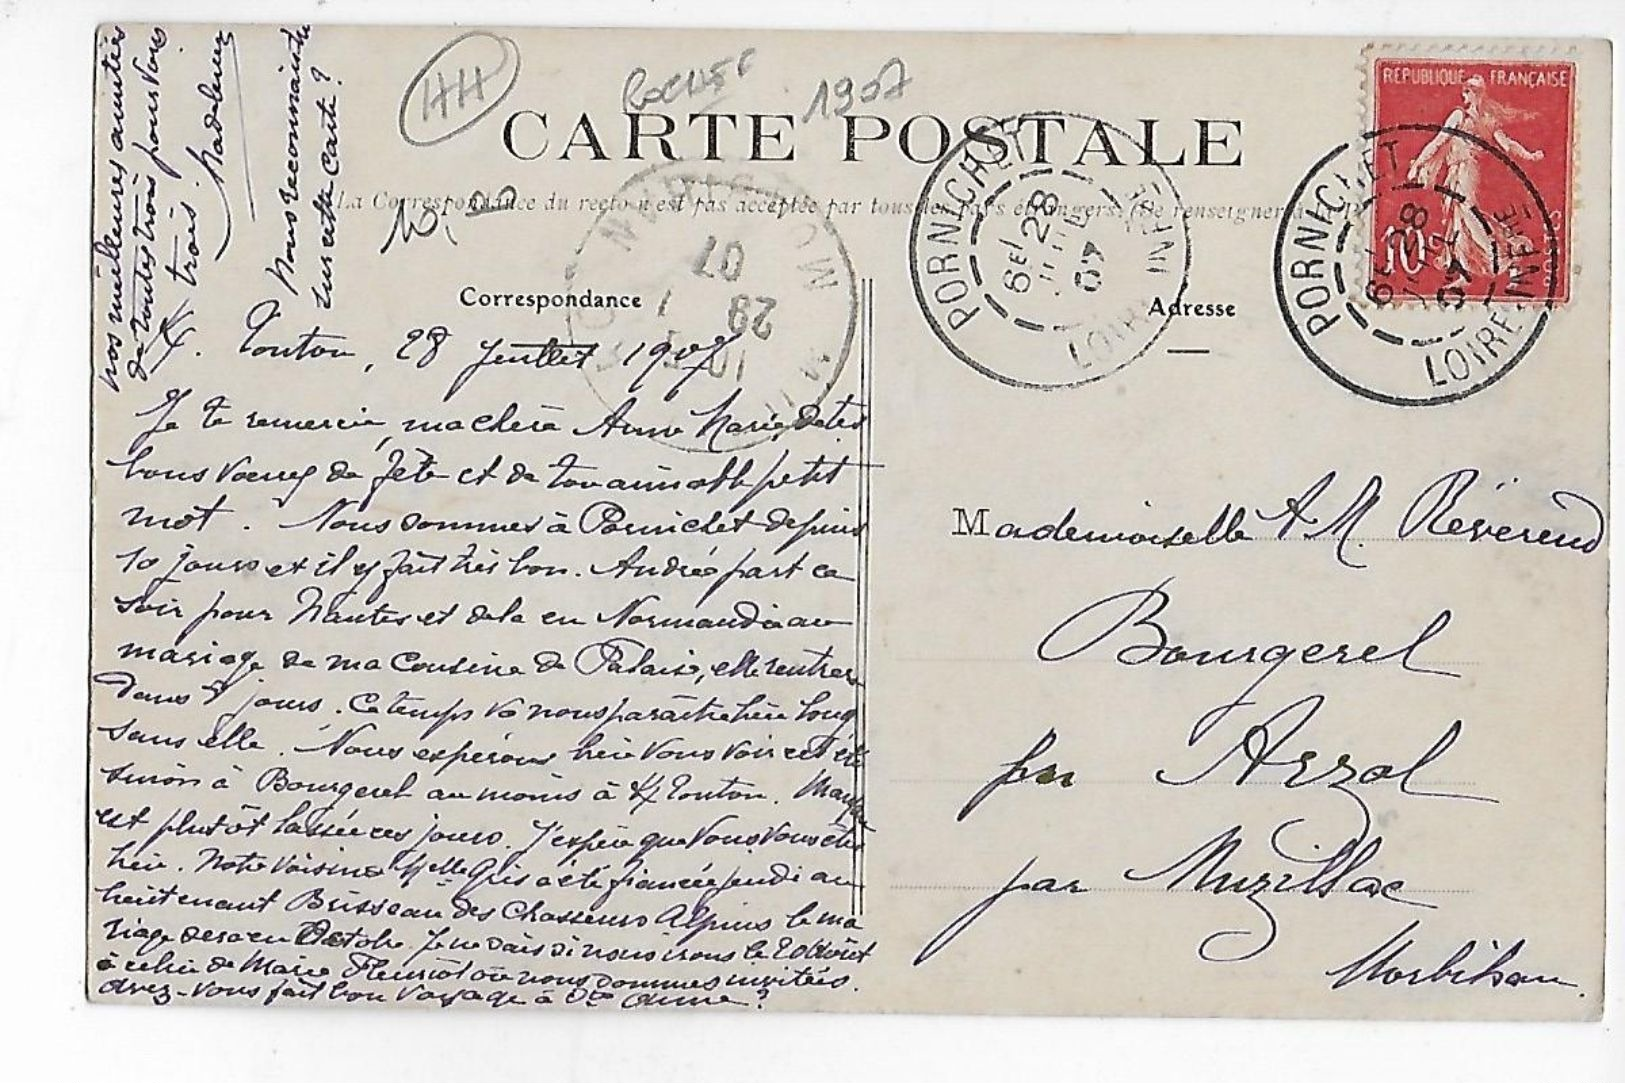 nos meilleures amitiés
de toutes trois pour vous
trois.
Madeleine
Nous reconnaissez
sur cette carte?
HH
1907
CARTE POSTALE
La Correspondance du recto n'est pas acceptée par tous les pays étrangers. (Se renseigner à la
10,00
Correspondance
Adresse
RÉPUBLIQUE FRANÇAISE
10
POSTES
PORNICHET
6E/ 28
JUIL
07
LOIRE INFRE
PORNICHET
6E/ 28
JUIL
07
LOIRE INFRE
10
29
07
MORBIHAN
X. Touton, 28 Juillet 1907
Je te remercie, ma chère Anne Marie, de tes
bons voeux de fête et de ton aimable petit
mot. Nous sommes à Pornichet depuis
10 jours et il y fait très bon. Andrée part ce
soir pour Nantes et de la en Normandie au
mariage de ma cousine de Palais, elle rentrera
dans 8 jours. Ce temps va nous paraître bien long
sans elle. Nous espérons bien vous voir cet été
sinon à Bourgerel au moins à X Touton.
est plutôt lassée ces jours. J'espère que vous vous êtes
bien. Notre voisine Melle Gris a été fiancée jeudi au
lieutenant Brisseau des Chasseurs Alpins le ma
riage sera en Octobre. Je ne sais si nous irons le 20 Août
à celui de Marie Fleuriot où nous sommes invitées.
avez-vous fait bon voyage à Ste Anne?
Mademoiselle A. M. Révérend
Bourgerel
par Arzal
par Muzillac
Morbihan.